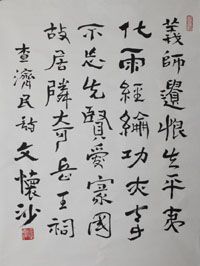 義師遺恨失平夷
化雨經綸功
不忘先賢愛家國
故居隣岳王祠
查濟民詩 文懷沙